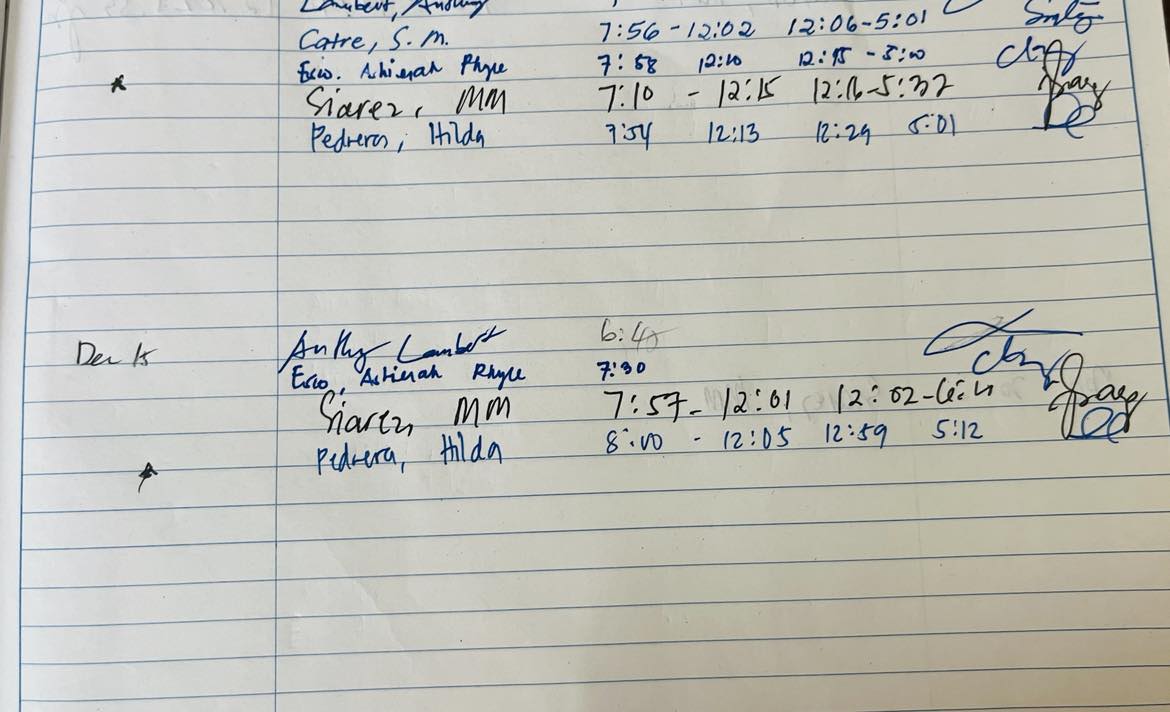 Lambert, Anthony
Catre, S.M. 7:56 - 12:02 12:06 - 5:01
Esio. Ashierah Rhyle 7:58 12:10 12:15 - 5:00
Siarez, MM 7:10 - 12:15 12:16 - 5:32
Pedrera, Hilda 7:54 12:13 12:29 5:01
Dec 15 Anthy Lambert 6:40
Esio, Ashierah Rhyle 7:30
Siarez, MM 7:57 - 12:01 12:02 -
Pedrera, Hilda 8:00 - 12:05 12:59 5:12